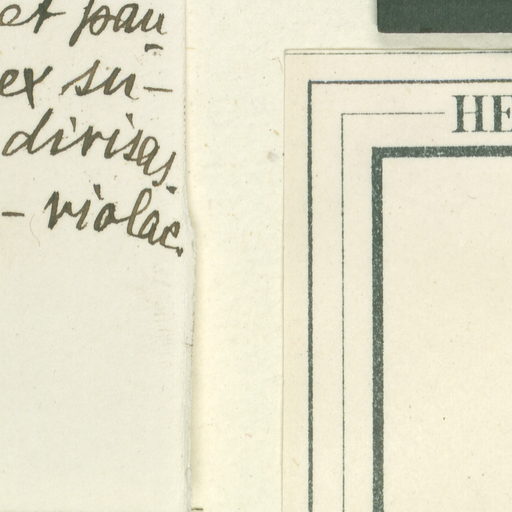 et pau
ex su-
divisas
- violac.
HE